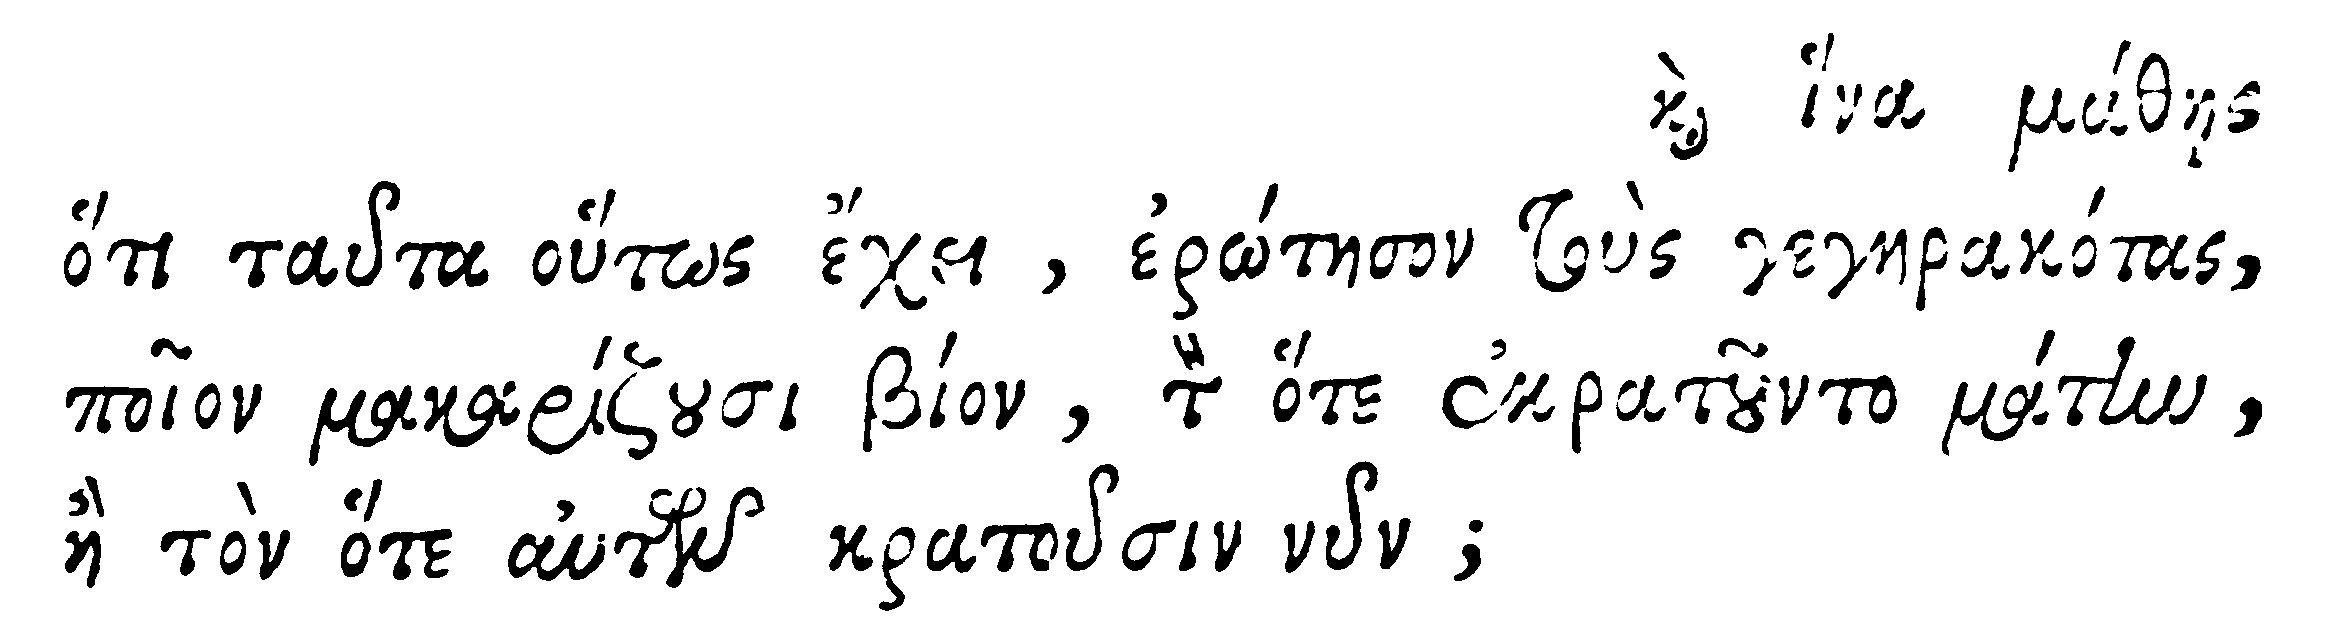 καὶ ἵνα μάθῃς
ὅτι ταῦτα οὕτως ἔχει, ἐρώτησον τοὺς γεγηρακότας,
ποῖον μακαρίζουσι βίον, τὸν ὅτε ἐκρατοῦντο μάτην,
ἢ τὸν ὅτε αὐτῶν κρατοῦσιν νῦν;